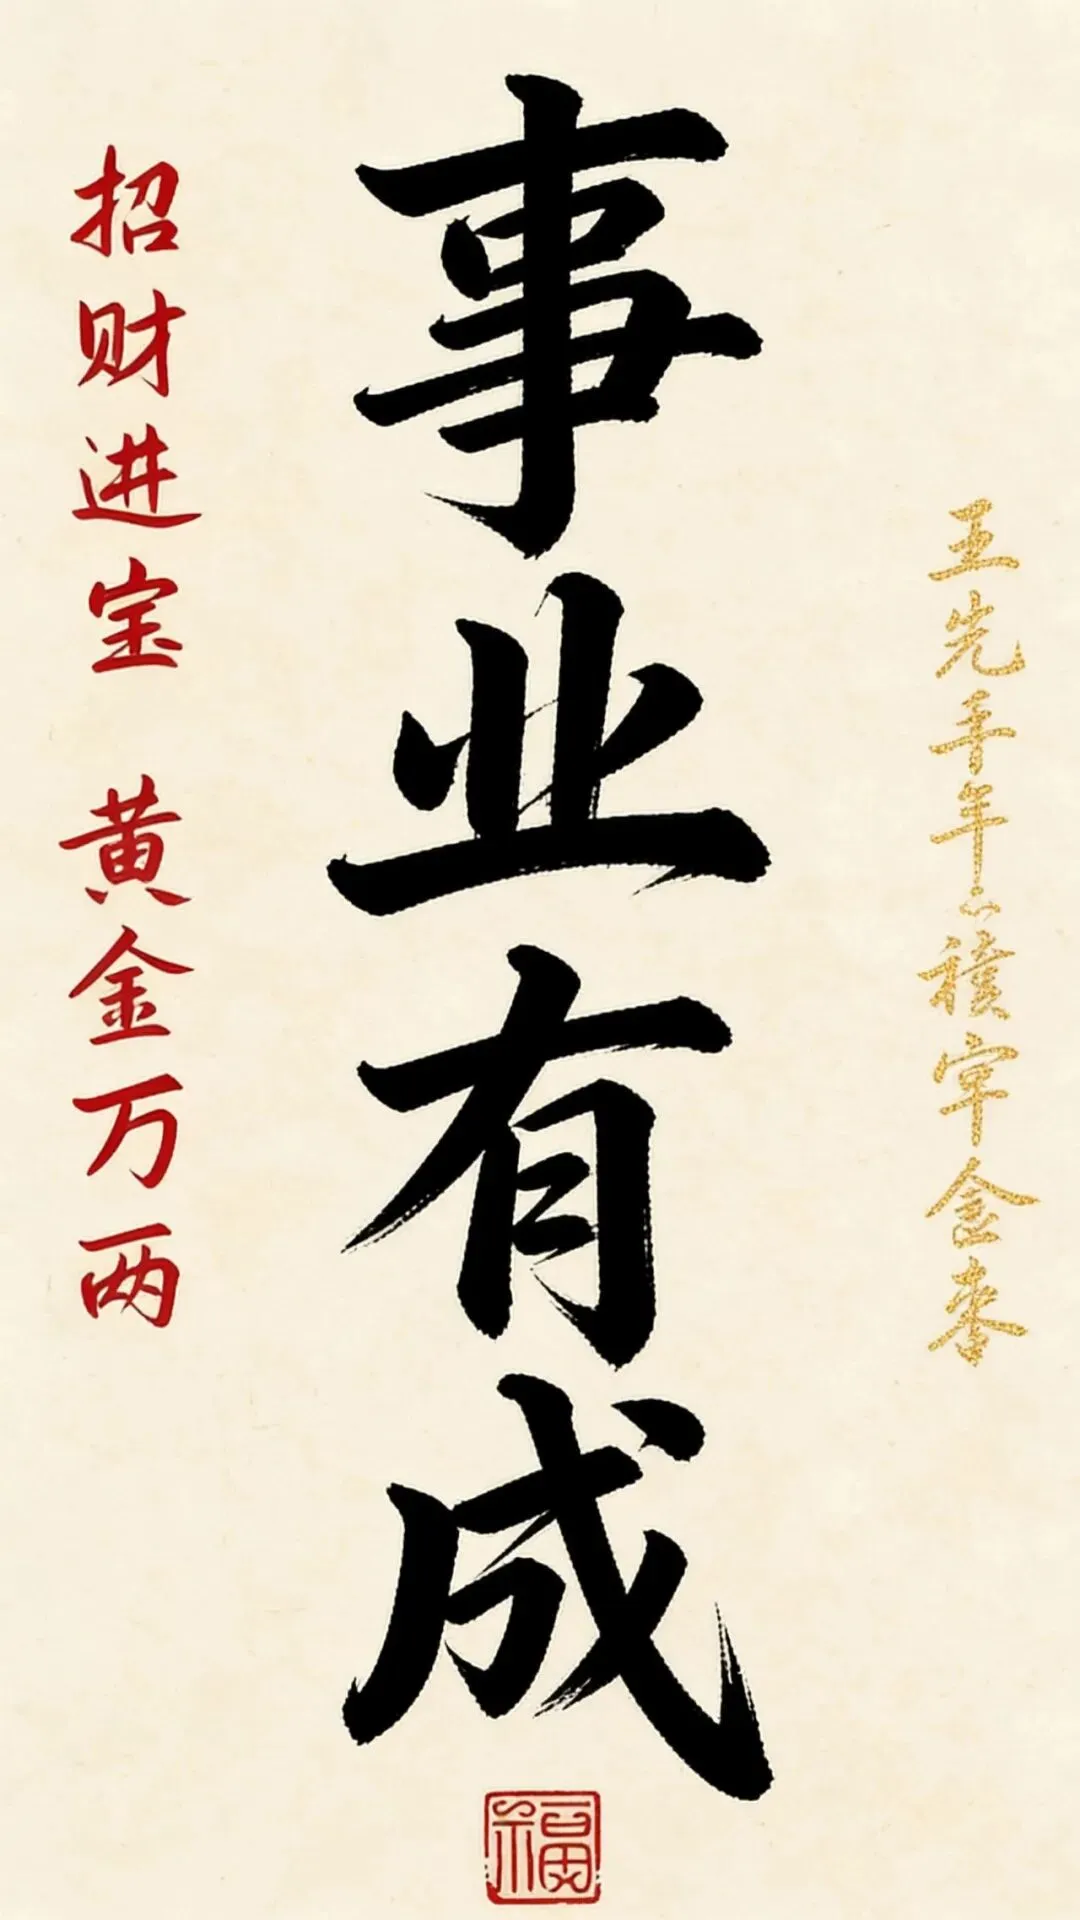 事业有成
招财进宝 黄金万两
王先
年
字金
福